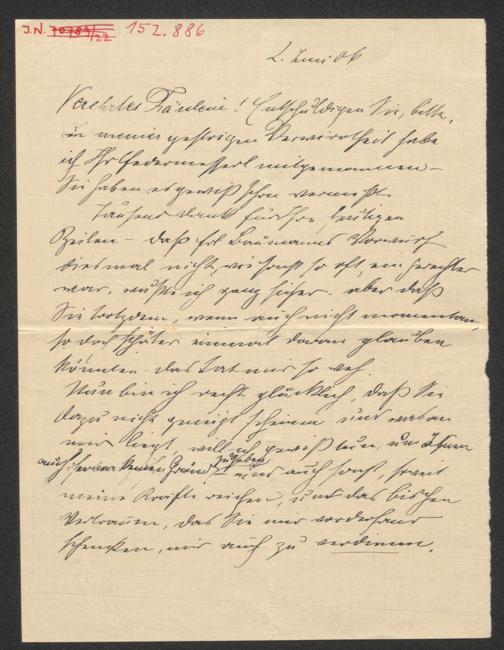 J.N. 152.886
2. Juni 06
Verehrtes Fräulein! Entschuldigen Sie, bitte,
in meiner gestrigen Verwirrtheit habe
ich Ihr Federmesserl mitgenommen –
Sie haben es gewiß schon vermißt.
Tausend Dank für Ihre heutigen
Zeilen – daß Frl Baumanns Vorwurf
diesmal nicht, wie sonst so oft, ein gerechter
war, wußte ich ganz sicher. aber daß
Sie trotzdem, wenn auch nicht momentan,
so doch später einmal daran glauben
könnten – das tat mir so weh.
Nun bin ich recht glücklich, daß Sie
dazu nicht geneigt scheinen und was an
mir liegt, will ich gewiß tun, um Ihnen
auch fernerhin keinen Grund zu geben
und auch sonst, soweit
meine Kräfte reichen, und das bischen
Vertrauen, das Sie mir vorderhand
schenken, mir auch zu verdienen.